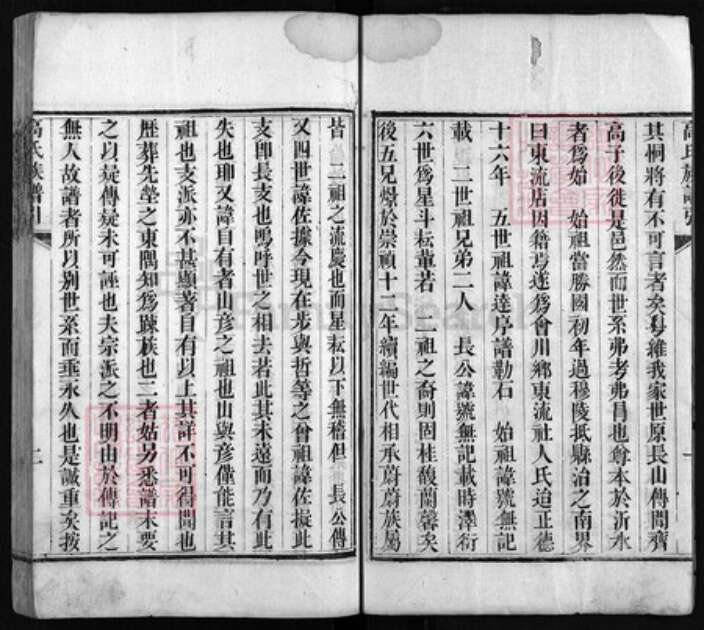 高氏族譜引
其桐將有不可言者矣科維我家世原長山傳聞齊
高子後徙是邑然而世系弗考弗昌也夲本於沂水
者爲始　始祖當勝國初年過穆陵抵縣治之南界
曰東流店因籍焉遂爲會川鄉東流社人氏迨正德
十六年　五世祖諱達序譜勒石　始祖諱號無記
載　二世祖兄弟二人　長公諱號無記載時澤衍
六世爲星斗耘董若　二祖之裔則固桂馥蘭馨矣
後五兄燝於崇禎十二年續編世代相承蔚蔚族屬
一
皆　二祖之流慶也而星耘以下無稽但　長公傳
又四世諱佐據今現在步與哲等之曾祖諱佐擬此
支卽長支也嗚呼世之相去若此其未遠而乃有此
失也聊又諱自有者山彥之祖也山與彥僅能言其
祖也支派亦不甚顯著自有以上其詳不可得聞也
歷葬先塋之東隅知爲踈族也二者姑另悉譜末要
之以疑傳疑未可誣也夫宗派之不明由於傳記之
無人故譜者所以別世系而垂永久也是誠重矣按
高氏族譜引
二
FamilySearch